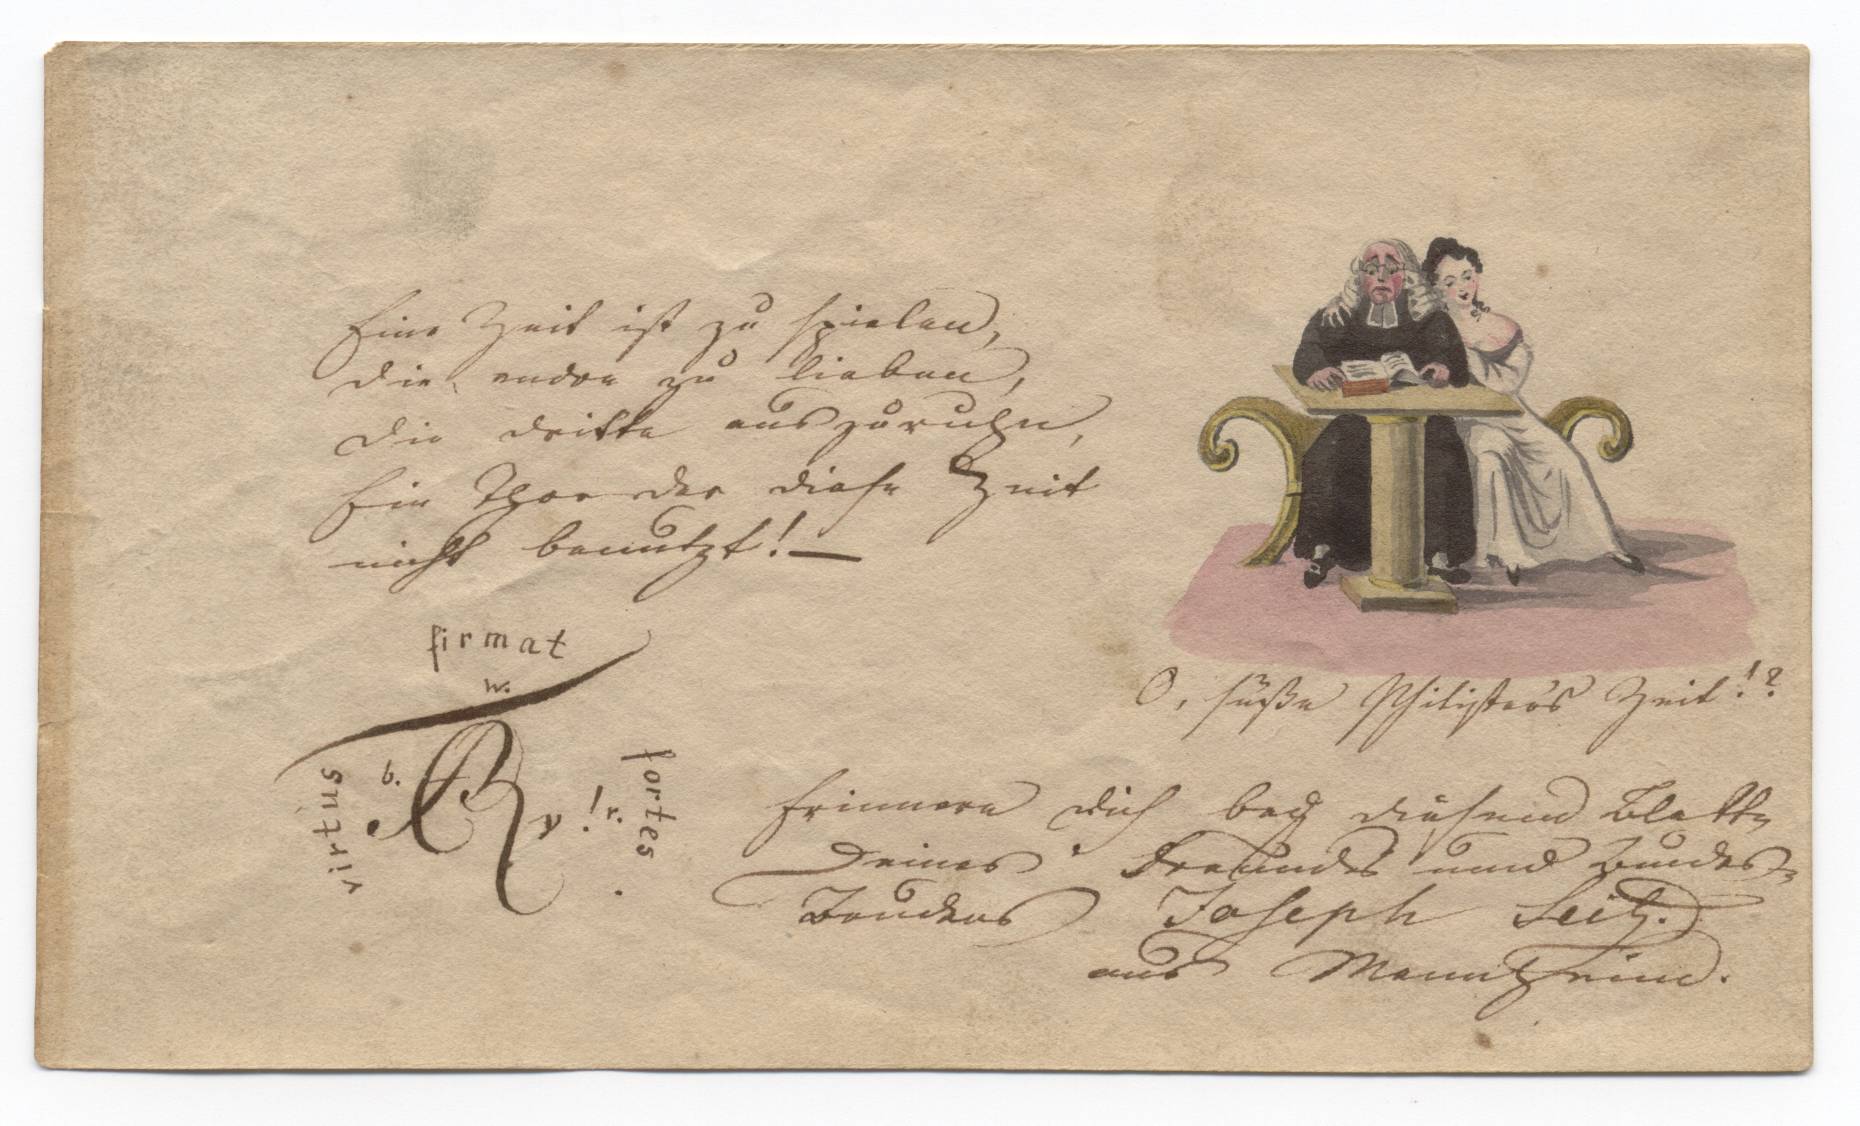 Eine Zeit ist zu spielen,
die andre zu lieben,
die dritte auszuruhn,
Ein Thor der diese Zeit
nicht benutzt! —
firmat
w.
virtus
b.
v! r.
fortes.
O, süße Philisters Zeit!?
Erinnere dich bey diesem Blatte
Deines Freundes und Bundes-
Bruders Joseph Seitz.
aus Mannheim.